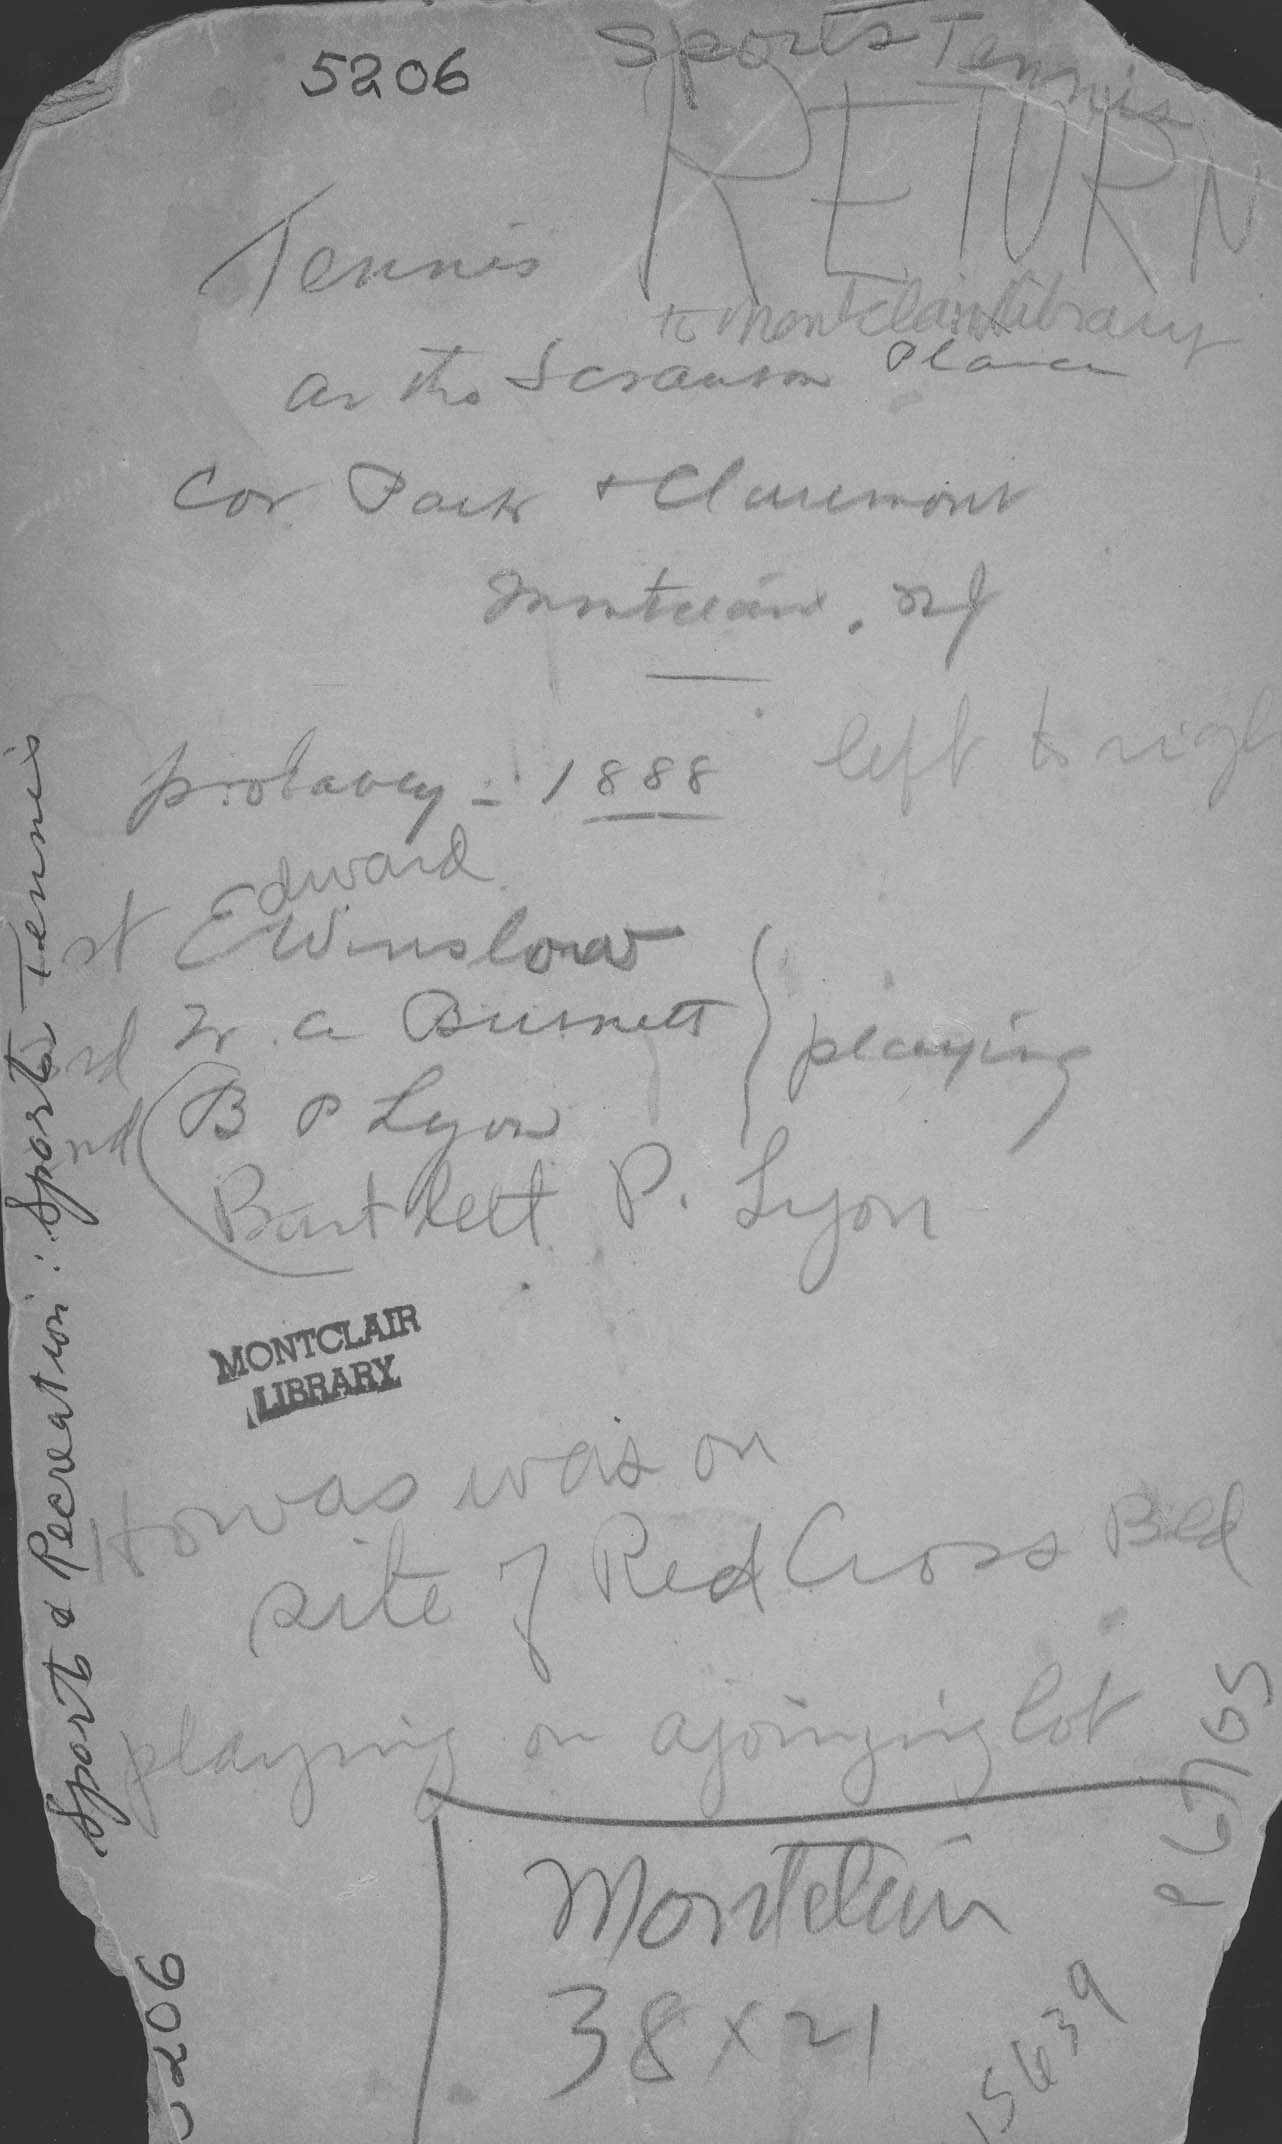 5206
Sports Tennis
RETURN
to Montclair Library
Tennis
at the Scranton Place
Cor Park + Claremont
Montclair. NJ
left to righ
probably = 1888
Edward
st E Winslow
rd W. a Burnett
playing
nd B P Lyon
Bartlett P. Lyon
MONTCLAIR
LIBRARY
was on
site of Red Cross Bld
playing on ajoinging lot
Montclair
38 x 21
15639
Sports & Recreation: Sports Tennis
5206